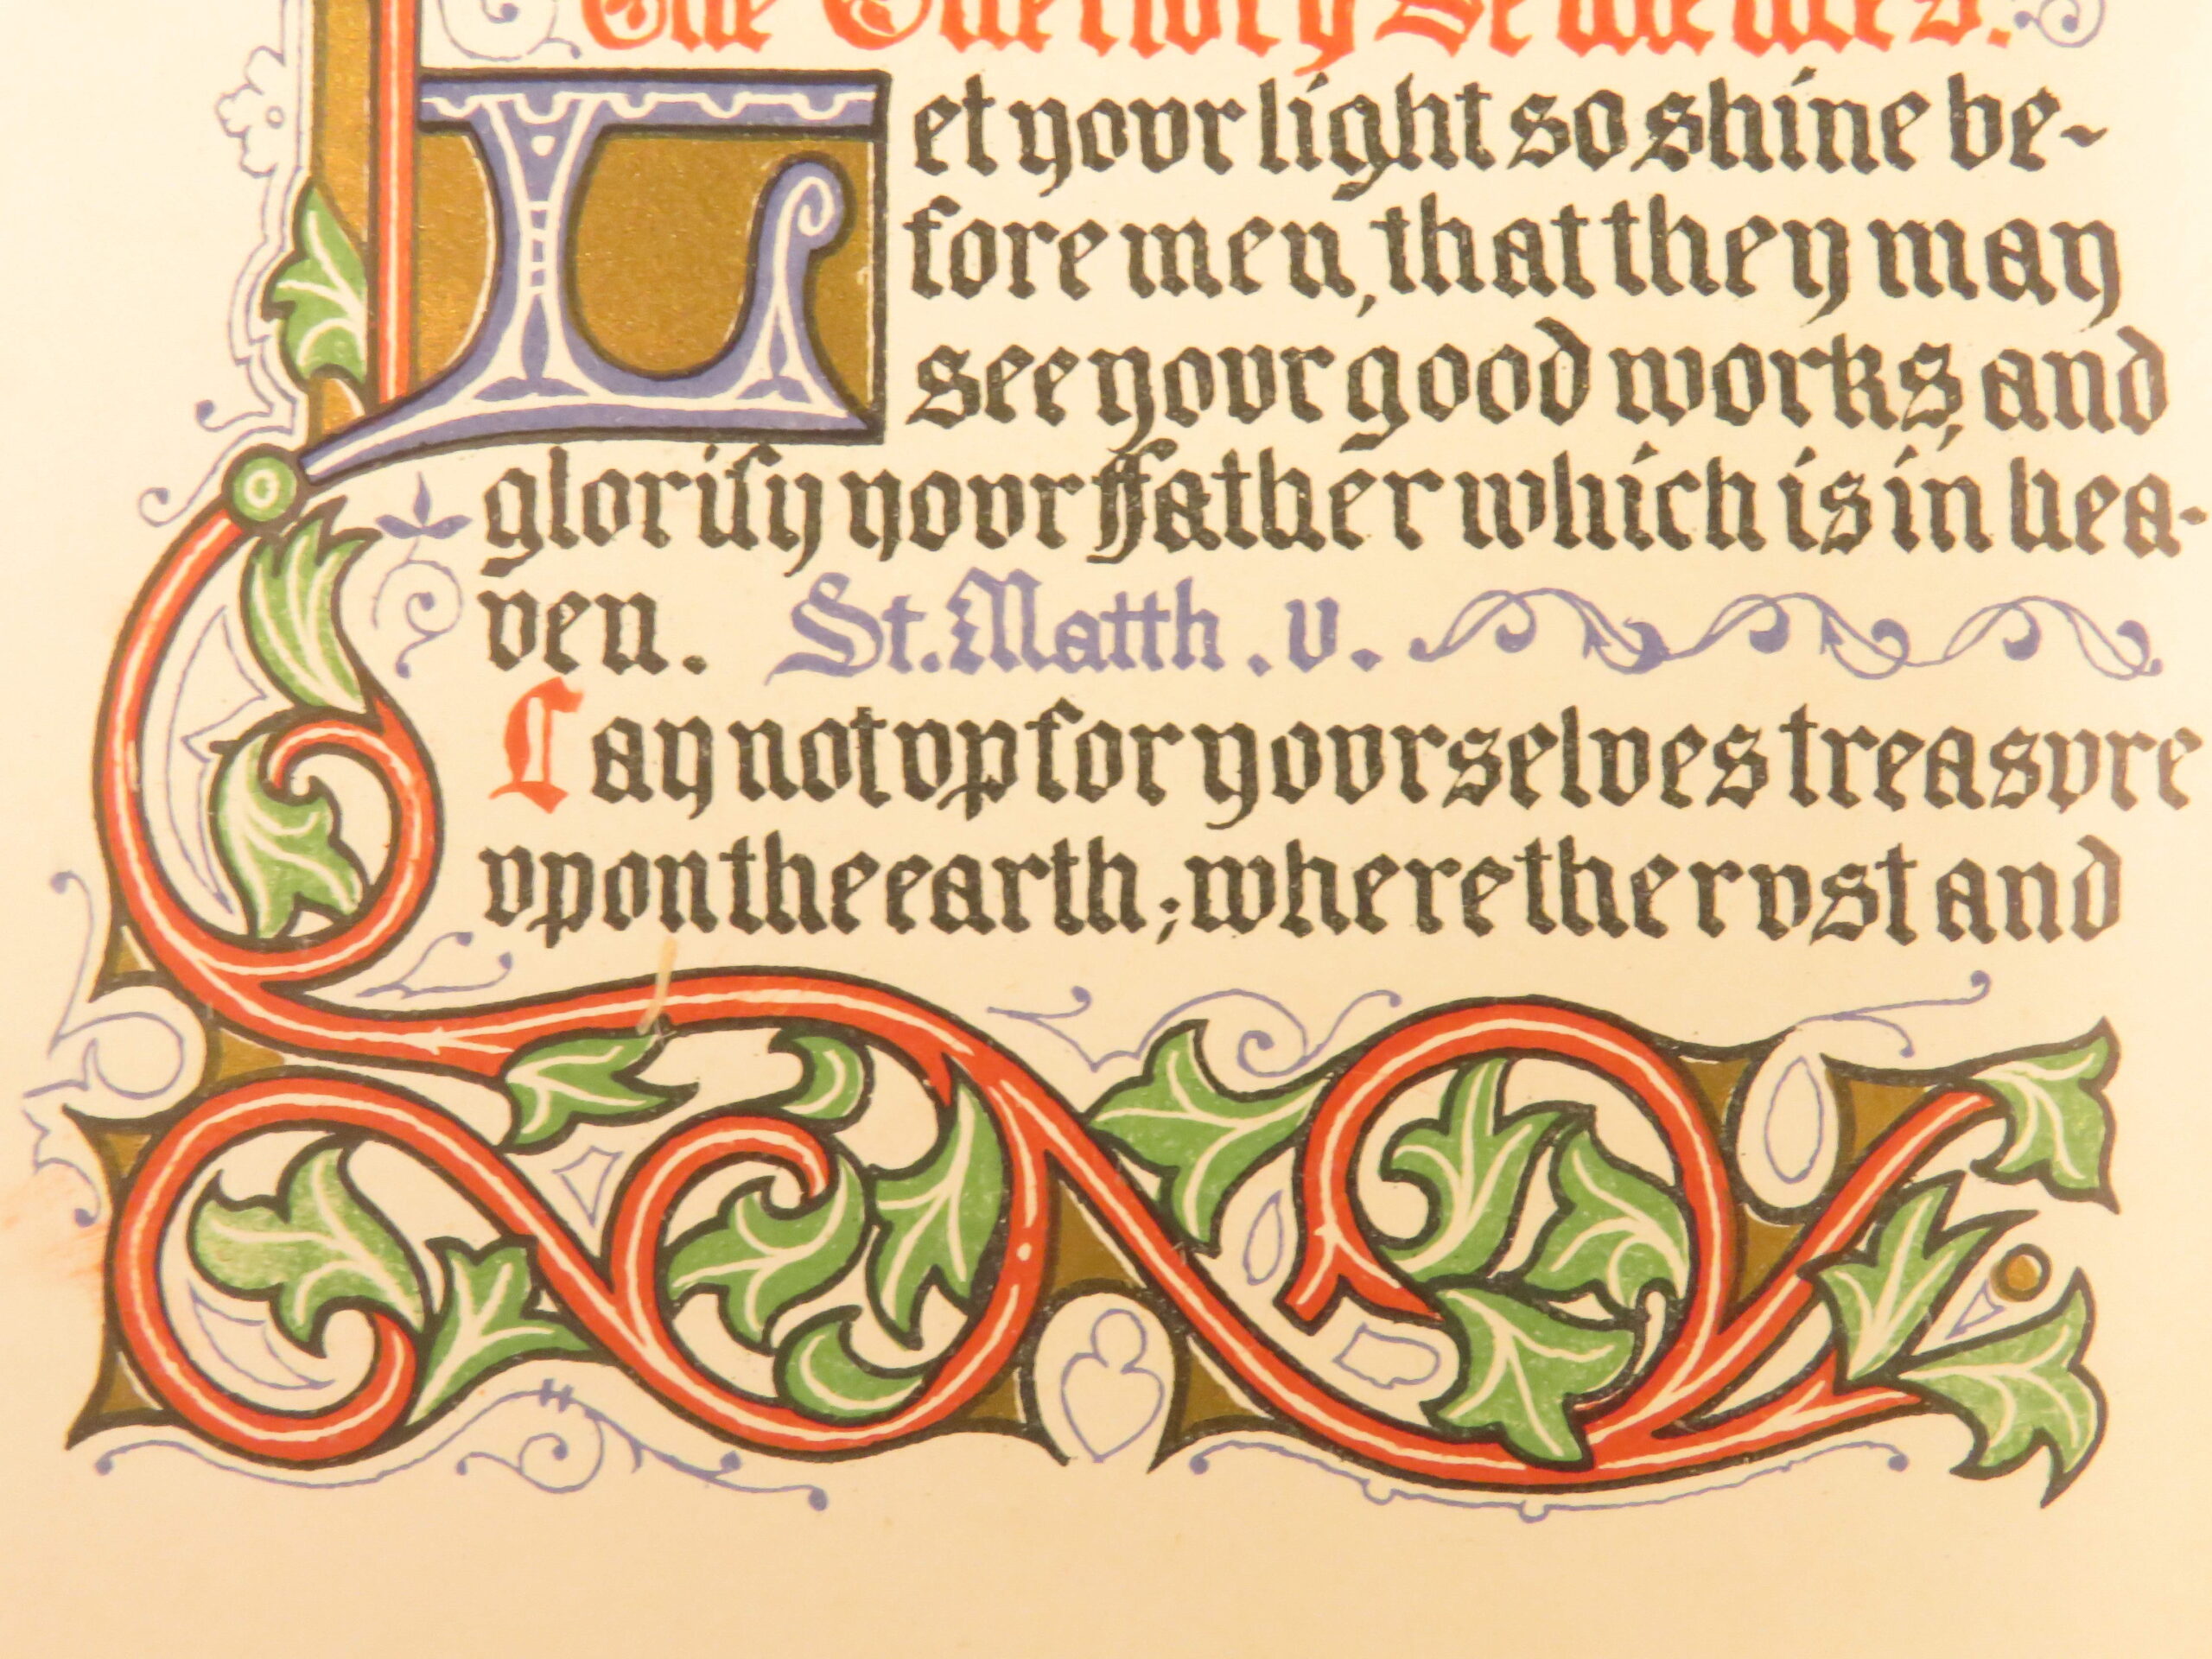 The Offertory Sentences.
Let yovr light so shine be-
fore men, that they may
see yovr good works, and
glorify yovr Father which is in hea-
ven. St. Matth. v.
Lay not vp for yovrselves treasvre
vpon the earth; where the rvst and